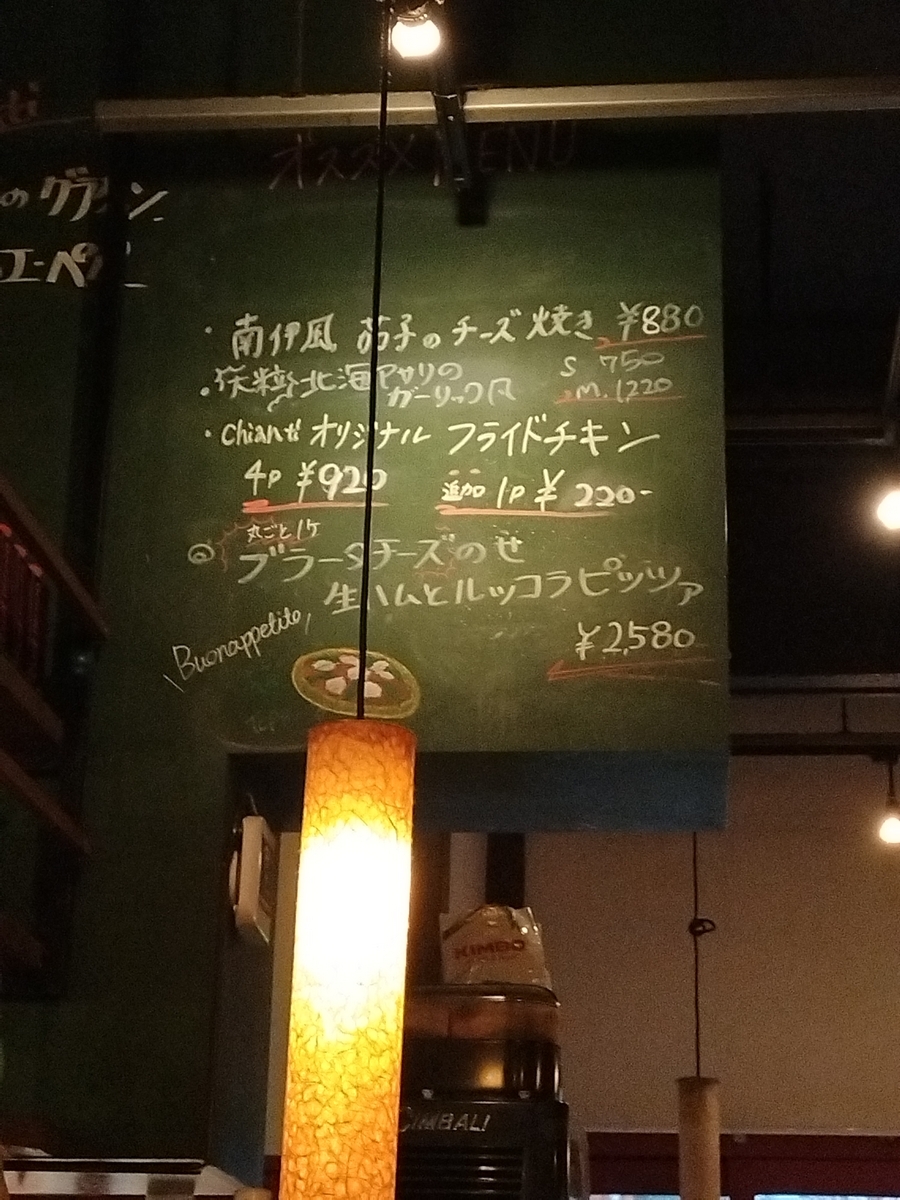 のグアン
エーペ
オススメMENU
・南伊風 茄子のチーズ焼き ¥880
粒北海アサリの S 750
ガーリック風 M.1220
・Chianti オリジナル フライドチキン
4p ¥920 追加 1p ¥220-
丸ごと1ケ
ブラータチーズのせ
生ハムとルッコラピッツァ
¥2,580
\Buonappetito/
KIMBO
CIMBALI